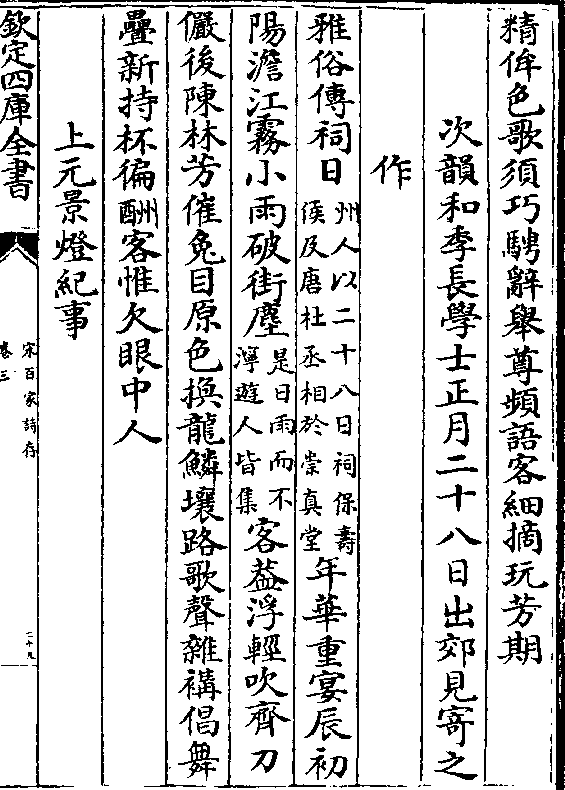 精侔色歌須巧騁辭舉尊頻語客細摘玩芳期
次韻和李長學士正月二十八日出郊見寄之
作
雅俗傳祠日州人以二十八日祠保壽侯及唐杜丞相於崇真堂年華重宴辰初
陽澹江霧小雨破街塵是日雨而不濘遊人皆集客葢浮輕吹齊刀
儼後陳林芳催兔目原色換龍鱗壤路歌聲雜褠倡舞
疊新持杯徧酬客惟欠眼中人
上元景燈紀事
欽定四庫全書
宋百家詩存
卷三
二十九